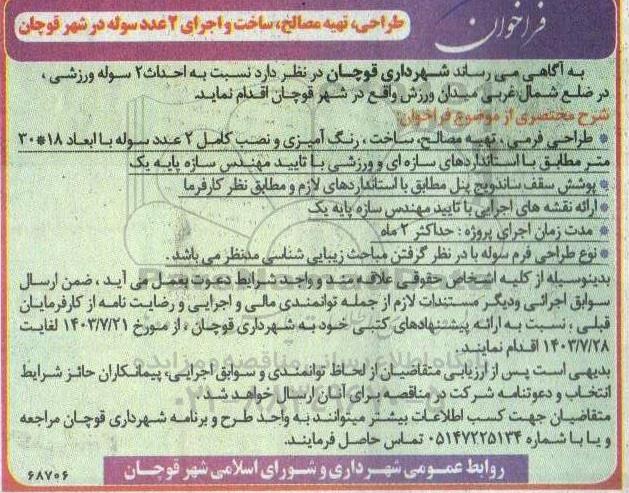 فراخوان
طراحی، تهیه مصالح، ساخت و اجرای ۲ عدد سوله در شهر قوچان
به آگاهی می رساند شهرداری قوچان در نظر دارد نسبت به احداث۲ سوله ورزشی ،
در ضلع شمال غربی میدان ورزش واقع در شهر قوچان اقدام نماید.
شرح مختصری از موضوع فراخوان:
* طراحی فرمی ، تهیه مصالح، ساخت ، رنگ آمیزی و نصب کامل ۲ عدد سوله با ابعاد ۱۸*۳۰
متر مطابق با استانداردهای سازه ای و ورزشی با تایید مهندس سازه پایه یک
* پوشش سقف ساندویچ پنل مطابق با استانداردهای لازم و مطابق نظر کارفرما
* ارائه نقشه های اجرایی با تایید مهندس سازه پایه یک
* مدت زمان اجرای پروژه : حداکثر ۲ ماه
* نوع طراحی فرم سوله با در نظر گرفتن مباحث زیبایی شناسی مدنظر می باشد .
بدینوسیله از کلیه اشخاص حقوقی علاقمند و واجد شرایط دعوت بعمل می آید ، ضمن ارسال
سوابق اجرائی ودیگر مستندات لازم از جمله توانمندی مالی و اجرایی و رضایت نامه از کارفرمایان
قبلی ، نسبت به ارائه پیشنهادهای کتبی خود به شهرداری قوچان ، از مورخ ۱۴۰۳/۷/۲۱ لغایت
۱۴۰۳/۷/۲۸ اقدام نمایند.
بدیهی است پس از ارزیابی متقاضیان از لحاظ توانمندی و سوابق اجرایی، پیمانکاران حائز شرایط
انتخاب و دعوتنامه شرکت در مناقصه برای آنان ارسال خواهد شد .
متقاضیان جهت کسب اطلاعات بیشتر میتوانند به واحد طرح و برنامه شهرداری قوچان مراجعه
و یا با شماره ۰۵۱۴۷۲۲۵۱۳۴ تماس حاصل فرمایند.
روابط عمومی شهرداری و شورای اسلامی شهر قوچان
۶۸۷۰۶